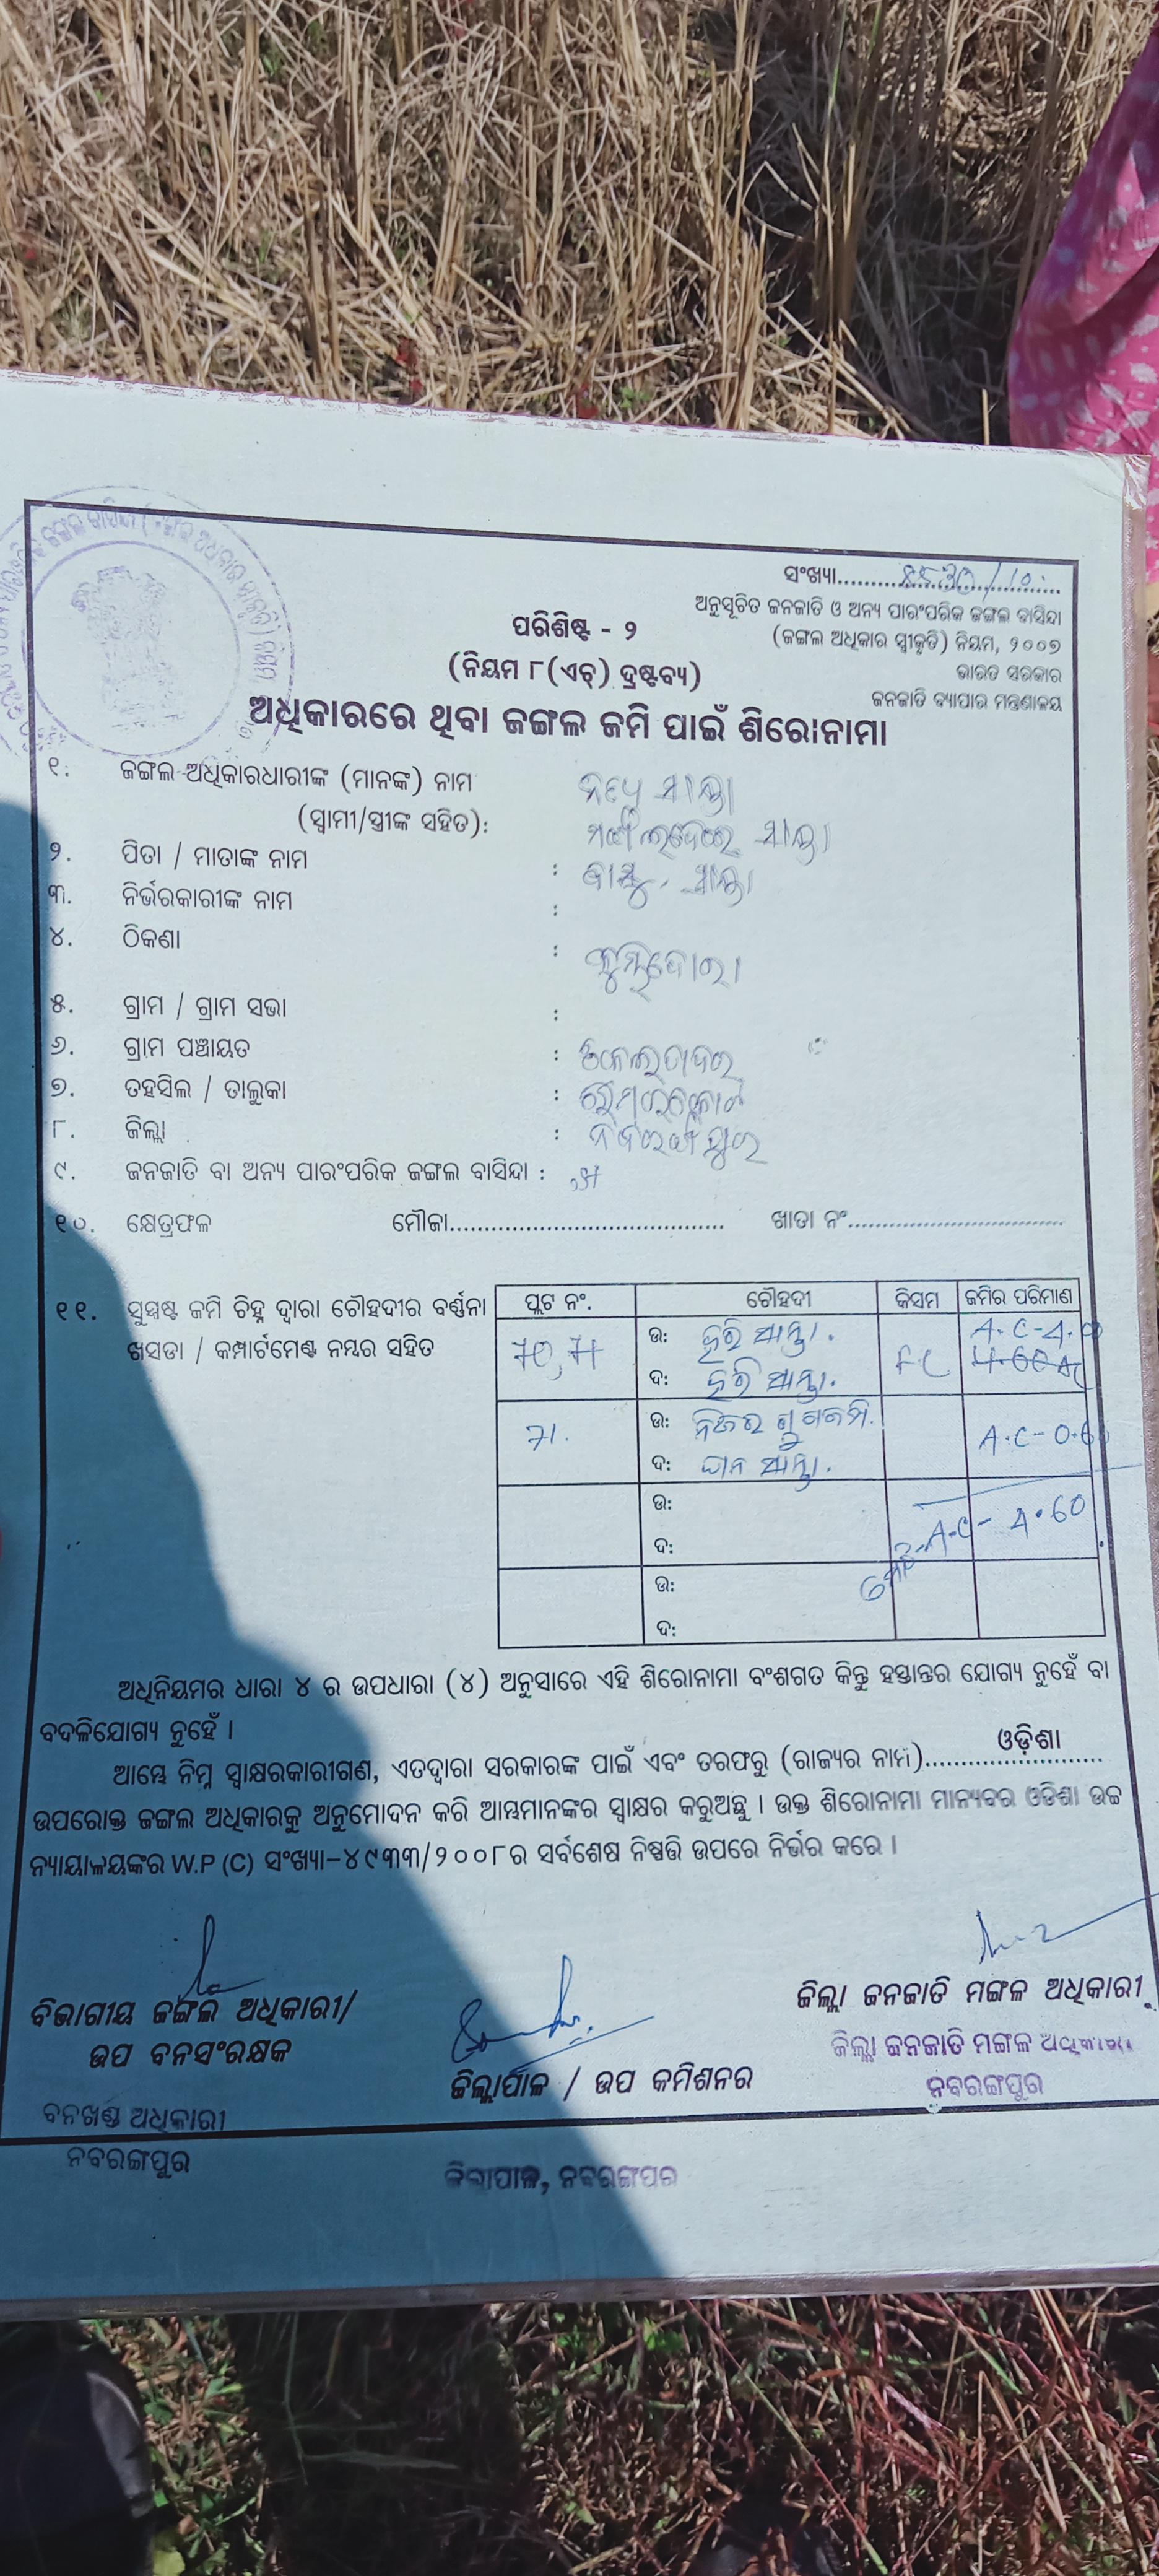 ସଂଖ୍ୟା
ଅନୁସୂଚିତ ଜନଜାତି ଓ ଅନ୍ୟ ପାରଂପରିକ ଜଙ୍ଗଲ ବାସିନ୍ଦା
(ଜଙ୍ଗଲ ଅଧିକାର ସ୍ୱୀକୃତି) ନିୟମ, ୨୦୦୭
ଭାରତ ସରକାର
ଜନଜାତି ବ୍ୟାପାର ମନ୍ତ୍ରଣାଳୟ
ପରିଶିଷ୍ଟ - ୨
(ନିୟମ ୮(ଏଚ୍) ଦ୍ରଷ୍ଟବ୍ୟ)
ଅଧିକାରରେ ଥିବା ଜଙ୍ଗଲ ଜମି ପାଇଁ ଶିରୋନାମା
୧. ଜଙ୍ଗଲ ଅଧିକାରଧାରୀଙ୍କ (ମାନଙ୍କ) ନାମ
(ସ୍ୱାମୀ/ସ୍ତ୍ରୀଙ୍କ ସହିତ):
୨. ପିତା / ମାତାଙ୍କ ନାମ :
୩. ନିର୍ଭରକାରୀଙ୍କ ନାମ :
୪. ଠିକଣା :
୫. ଗ୍ରାମ / ଗ୍ରାମ ସଭା :
୬. ଗ୍ରାମ ପଞ୍ଚାୟତ :
୭. ତହସିଲ / ତାଲୁକା :
୮. ଜିଲ୍ଲା : ନବରଙ୍ଗପୁର
୯. ଜନଜାତି ବା ଅନ୍ୟ ପାରଂପରିକ ଜଙ୍ଗଲ ବାସିନ୍ଦା :
୧୦. କ୍ଷେତ୍ରଫଳ ମୌଜା ଖାତା ନଂ
୧୧. ସୁସ୍ପଷ୍ଟ ଜମି ଚିହ୍ନ ଦ୍ୱାରା ଚୌହଦୀର ବର୍ଣ୍ଣନା
ଖସଡା / କମ୍ପାର୍ଟମେଣ୍ଟ ନମ୍ବର ସହିତ
ପ୍ଲଟ ନଂ. ଚୌହଦୀ କିସମ ଜମିର ପରିମାଣ
ଉ: ହରି ସାନ୍ତା.
ଦ: ହରି ସାନ୍ତା.
71. ଉ: A.C-0.60
ଦ: ସାନ୍ତା.
ଉ: A.C- 4.60
ଦ:
ଉ:
ଦ:
ଅଧିନିୟମର ଧାରା ୪ ର ଉପଧାରା (୪) ଅନୁସାରେ ଏହି ଶିରୋନାମା ବଂଶଗତ କିନ୍ତୁ ହସ୍ତାନ୍ତର ଯୋଗ୍ୟ ନୁହେଁ ବା
ବଦଳିଯୋଗ୍ୟ ନୁହେଁ ।
ଆମ୍ଭେ ନିମ୍ନ ସ୍ୱାକ୍ଷରକାରୀଗଣ, ଏତଦ୍ୱାରା ସରକାରଙ୍କ ପାଇଁ ଏବଂ ତରଫରୁ (ରାଜ୍ୟର ନାମ) ଓଡ଼ିଶା
ଉପରୋକ୍ତ ଜଙ୍ଗଲ ଅଧିକାରକୁ ଅନୁମୋଦନ କରି ଆମ୍ଭମାନଙ୍କର ସ୍ୱାକ୍ଷର କରୁଅଛୁ । ଉକ୍ତ ଶିରୋନାମା ମାନ୍ୟବର ଓଡିଶା ଉଚ୍ଚ
ନ୍ୟାୟାଳୟଙ୍କର W.P (C) ସଂଖ୍ୟା-୪୯୩୩/୨୦୦୮ର ସର୍ବଶେଷ ନିଷ୍ପତ୍ତି ଉପରେ ନିର୍ଭର କରେ ।
ବିଭାଗୀୟ ଜଙ୍ଗଲ ଅଧିକାରୀ/
ଉପ ବନସଂରକ୍ଷକ
ବନଖଣ୍ଡ ଅଧିକାରୀ
ନବରଙ୍ଗପୁର
ଜିଲ୍ଲାପାଳ / ଉପ କମିଶନର
ଜିଲ୍ଲାପାଳ, ନବରଙ୍ଗପୁର
ଜିଲ୍ଲା ଜନଜାତି ମଙ୍ଗଳ ଅଧିକାରୀ
ଜିଲ୍ଲା ଜନଜାତି ମଙ୍ଗଳ ଅଧିକାରୀ
ନବରଙ୍ଗପୁର